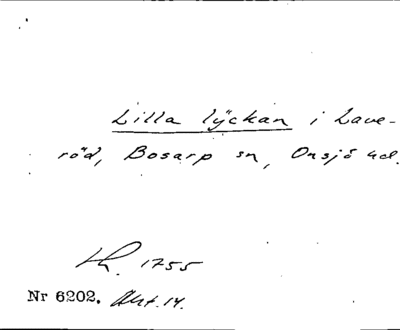 Lilla lyckan i Lave-
röd, Bosarp sn, Onsjö hd.
Lh. 1755
Nr 6202. Akt. 14.